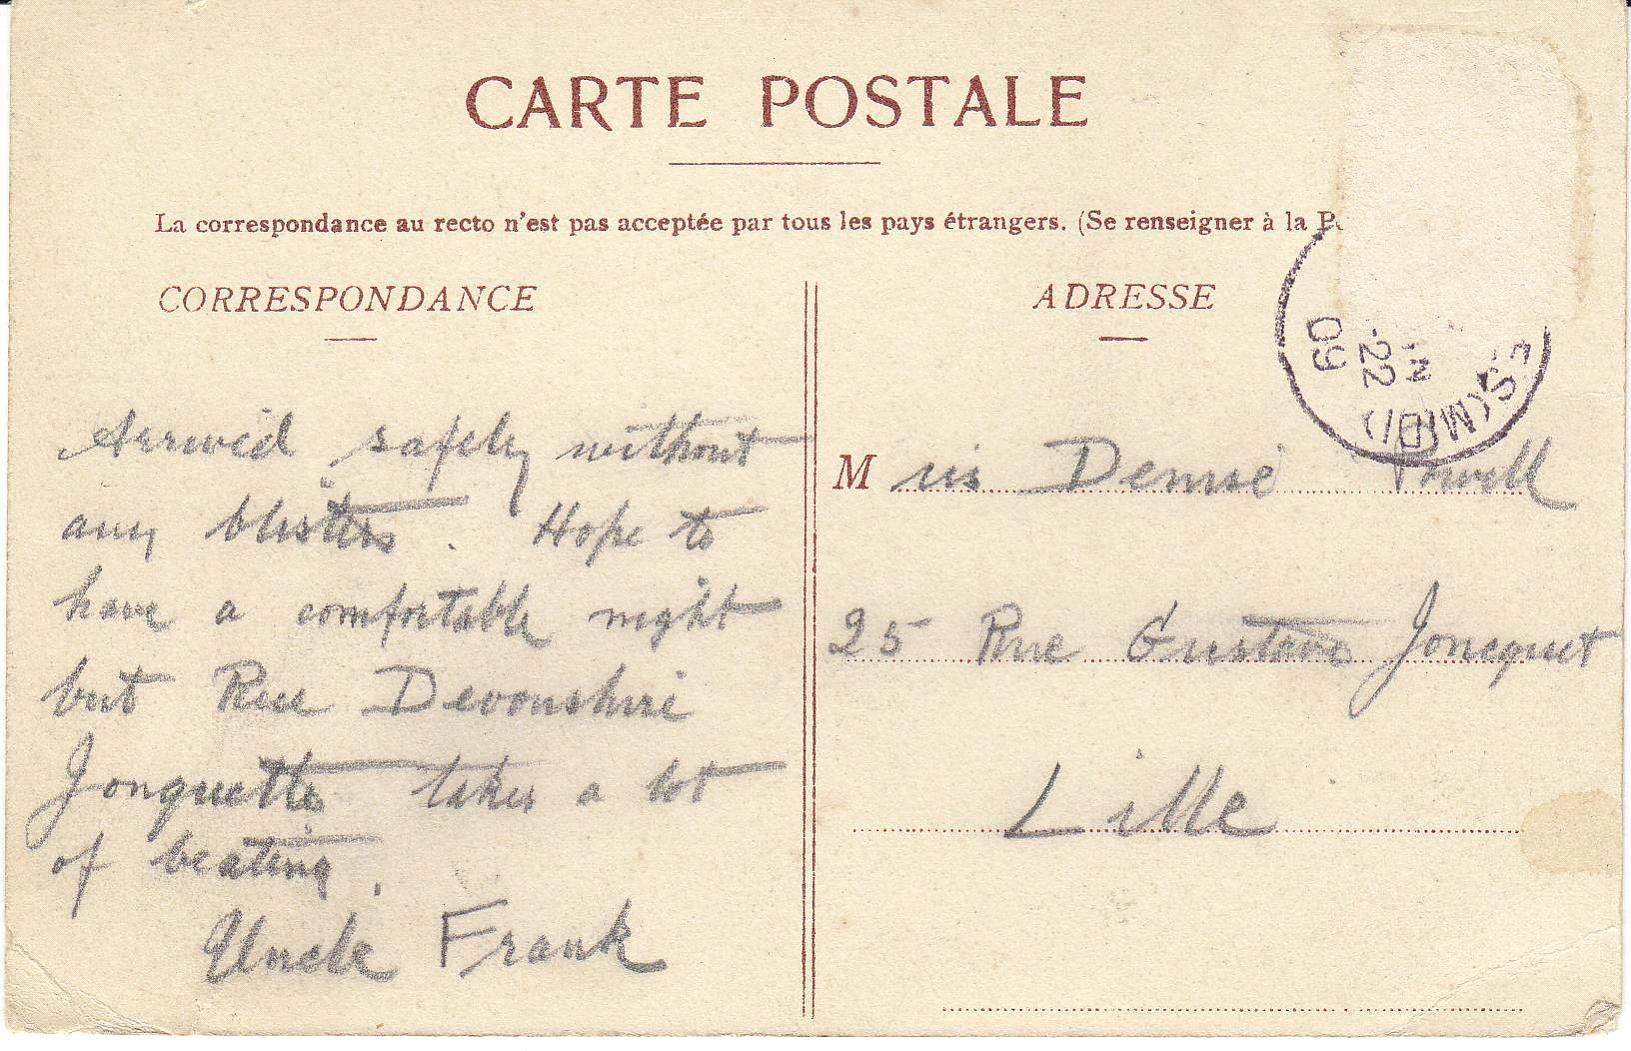 CARTE POSTALE
La correspondance au recto n'est pas acceptée par tous les pays étrangers. (Se renseigner à la
CORRESPONDANCE
Arrived safely without
any blisters. Hope to
have a comfortable night
but Rue Devonshire
Jonquette takes a lot
of beating.
Uncle Frank
ADRESSE
Miss Denise Powell
25 Rue Gustave Joncquet
Lille
22
09
S(MIDI)